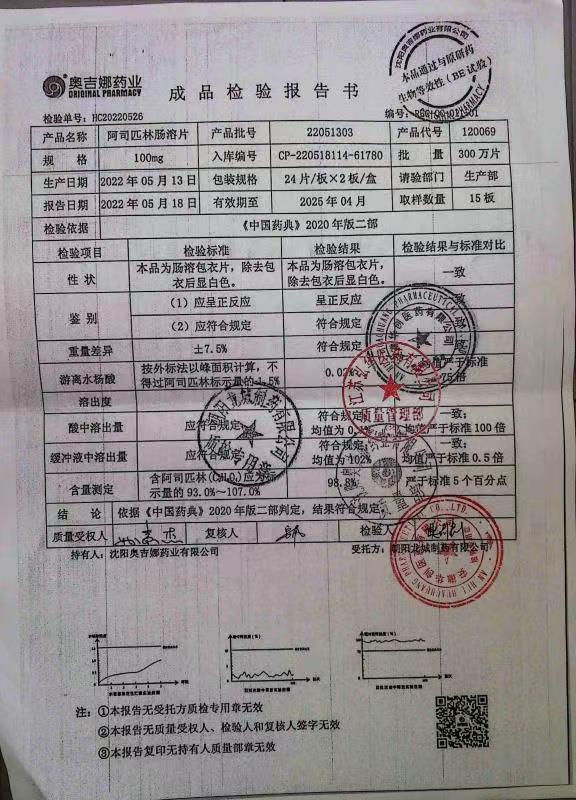 奥吉娜药业
ORIGINAL PHARMACY
成品检验报告书
沈阳奥吉娜药业有限公司
本品通过与原研药
生物等效性（BE试验）
检验单号：HC20220526 编号：
产品名称 阿司匹林肠溶片 产品批号 22051303 产品代号 120069
规格 100mg 入库编号 CP-220518114-61780 批量 300万片
生产日期 2022年05月13日 包装规格 24片/板×2板/盒 请验部门 生产部
报告日期 2022年05月18日 有效期至 2025年04月 取样数量 15板
检验依据 《中国药典》2020年版二部
检验项目 检验标准 检验结果 检验结果与标准对比
性状 本品为肠溶包衣片，除去包衣后显白色。 本品为肠溶包衣片，除去包衣后显白色。 一致
鉴别 （1）应呈正反应 呈正反应
（2）应符合规定 符合规定
重量差异 ±7.5% 符合规定
游离水杨酸 按外标法以峰面积计算，不得过阿司匹林标示量的
溶出度
酸中溶出量 应符合规定 符合规定 均值为 一致；均值严于标准100倍
缓冲液中溶出量 应符合规定 符合规定 均值为102% 一致；均值严于标准0.5倍
含量测定 含阿司匹林 应为标示量的93.0%~107.0% 98.8% 严于标准5个百分点
结论 依据《中国药典》2020年版二部判定，结果符合规定
质量受权人 复核人 检验人
持有人：沈阳奥吉娜药业有限公司 受托方：朝阳龙城制药有限公司
质量管理部
注：①本报告无受托方质检专用章无效
②本报告无质量受权人、检验人和复核人签字无效
③本报告复印无持有人质量部章无效